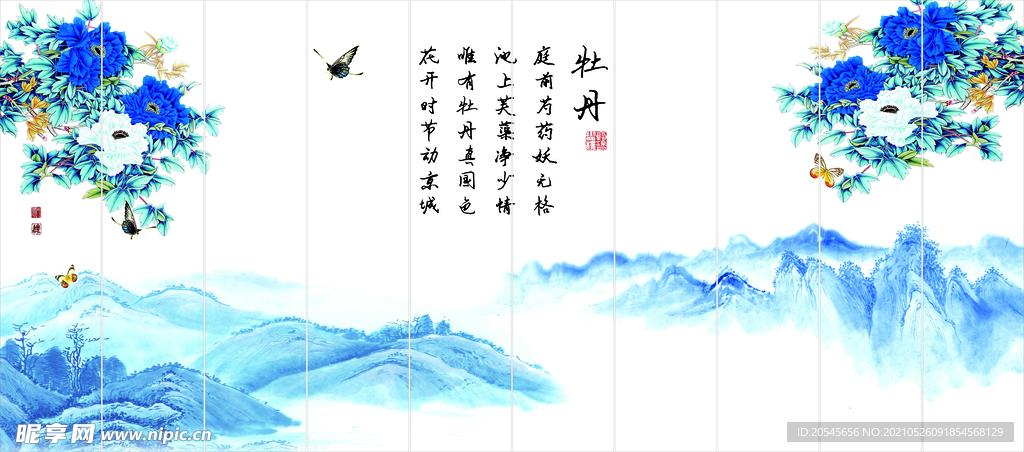 牡丹
庭前芍药妖无格
池上芙蕖净少情
唯有牡丹真国色
花开时节动京城
昵享网 www.nipic.cn
ID:20545656 NO:20210526091854568129